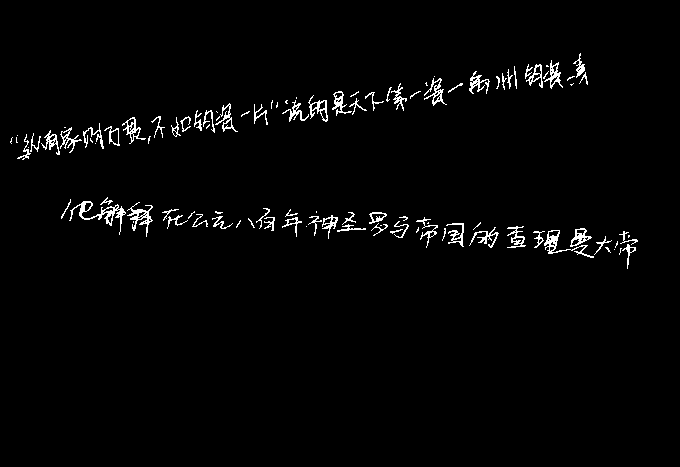 “纵有家财万贯，不如钧瓷一片”说的是天下第一瓷一禹州钧瓷。真
他解释在公元八百年神圣罗马帝国的查理曼大帝